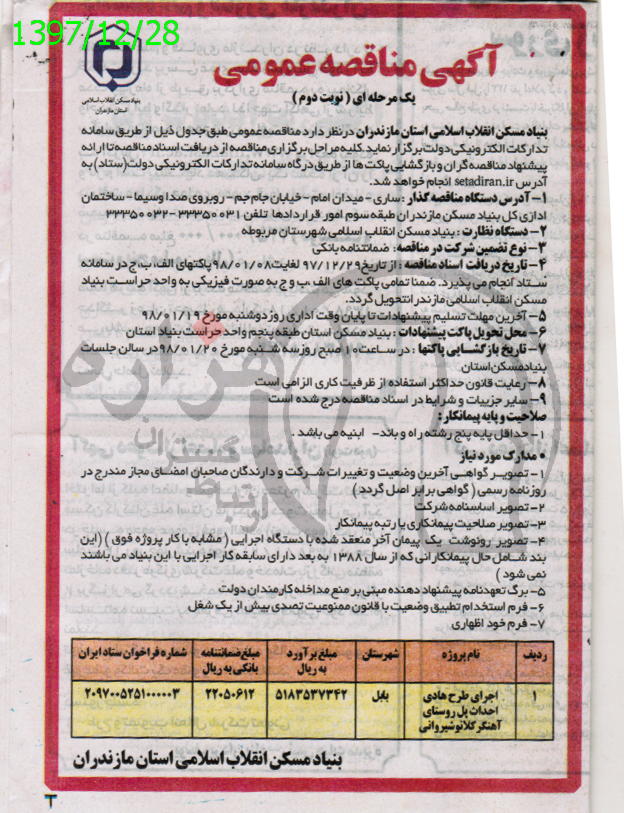 1397/12/28
بنیاد مسکن انقلاب اسلامی
استان مازندران
آگهی مناقصه عمومی
یک مرحله ای ( نوبت دوم )
بنیاد مسکن انقلاب اسلامی استان مازندران در نظر دارد مناقصه عمومی طبق جدول ذیل از طریق سامانه
تدارکات الکترونیکی دولت برگزار نماید. کلیه مراحل برگزاری مناقصه از دریافت اسناد مناقصه تا ارائه
پیشنهاد مناقصه گران و بازگشایی پاکت ها از طریق درگاه سامانه تدارکات الکترونیکی دولت (ستاد) به
آدرس setadiran.ir انجام خواهد شد.
۱- آدرس دستگاه مناقصه گذار : ساری - میدان امام - خیابان جام جم - روبروی صدا و سیما - ساختمان
اداری کل بنیاد مسکن مازندران طبقه سوم امور قراردادها تلفن ۳۳۳۵۰۰۳۱-۳۳۳۵۰۰۳۲
۲- دستگاه نظارت : بنیاد مسکن انقلاب اسلامی شهرستان مربوطه
۳- نوع تضمین شرکت در مناقصه: ضمانتنامه بانکی
۴- تاریخ دریافت اسناد مناقصه : از تاریخ ۹۷/۱۲/۲۹ لغایت ۹۸/۰۱/۰۸ پاکتهای الف، ب، ج در سامانه
ستاد انجام می پذیرد. ضمنا تمامی پاکت های الف، ب و ج به صورت فیزیکی به واحد حراست بنیاد
مسکن انقلاب اسلامی مازندر انتحویل گردد.
۵- آخرین مهلت تسلیم پیشنهادات تا پایان وقت اداری روز دوشنبه مورخ ۹۸/۰۱/۱۹
۶- محل تحویل پاکت پیشنهادات : بنیاد مسکن استان طبقه پنجم واحد حراست بنیاد استان
۷- تاریخ بازگشایی پاکتها : در ساعت ۱۰ صبح روز سه شنبه مورخ ۹۸/۰۱/۲۰ در سالن جلسات
بنیاد مسکن استان
۸- رعایت قانون حداکثر استفاده از ظرفیت کاری الزامی است
۹- سایر جزییات و شرایط در اسناد مناقصه درج شده است
صلاحیت و پایه پیمانکار :
۱- حداقل پایه پنج رشته راه و باند- ابنیه می باشد .
• مدارک مورد نیاز
۱- تصویر گواهی آخرین وضعیت و تغییرات شرکت و دارندگان صاحبان امضای مجاز مندرج در
روزنامه رسمی ( گواهی برابر اصل گردد )
۲- تصویر اساسنامه شرکت
۳- تصویر صلاحیت پیمانکاری یا رتبه پیمانکار
۴- تصویر رونوشت یک پیمان آخر منعقد شده با دستگاه اجرایی ( مشابه با کار پروژه فوق ) (این
بند شامل حال پیمانکارانی که از سال ۱۳۸۸ به بعد دارای سابقه کار اجرایی با این بنیاد می باشند
نمی شود )
۵- برگ تعهدنامه پیشنهاد دهنده مبتی بر منع مداخله کارمندان دولت
۶- فرم استخدام تطبیق وضعیت با قانون ممنوعیت تصدی بیش از یک شغل
۷- فرم خود اظهاری
ردیف نام پروژه شهرستان مبلغ برآورد به ریال مبلغ ضمانتنامه بانکی به ریال شماره فراخوان ستاد ایران
۱ اجرای طرح هادی احداث پل روستای آهنگرکلانوشیروانی بابل ۵۱۸۳۵۳۷۳۴۲ ۲۲۰۵۰۶۱۲ ۲۰۹۷۰۰۵۲۵۱۰۰۰۰۰۳
بنیاد مسکن انقلاب اسلامی استان مازندران
هزاره